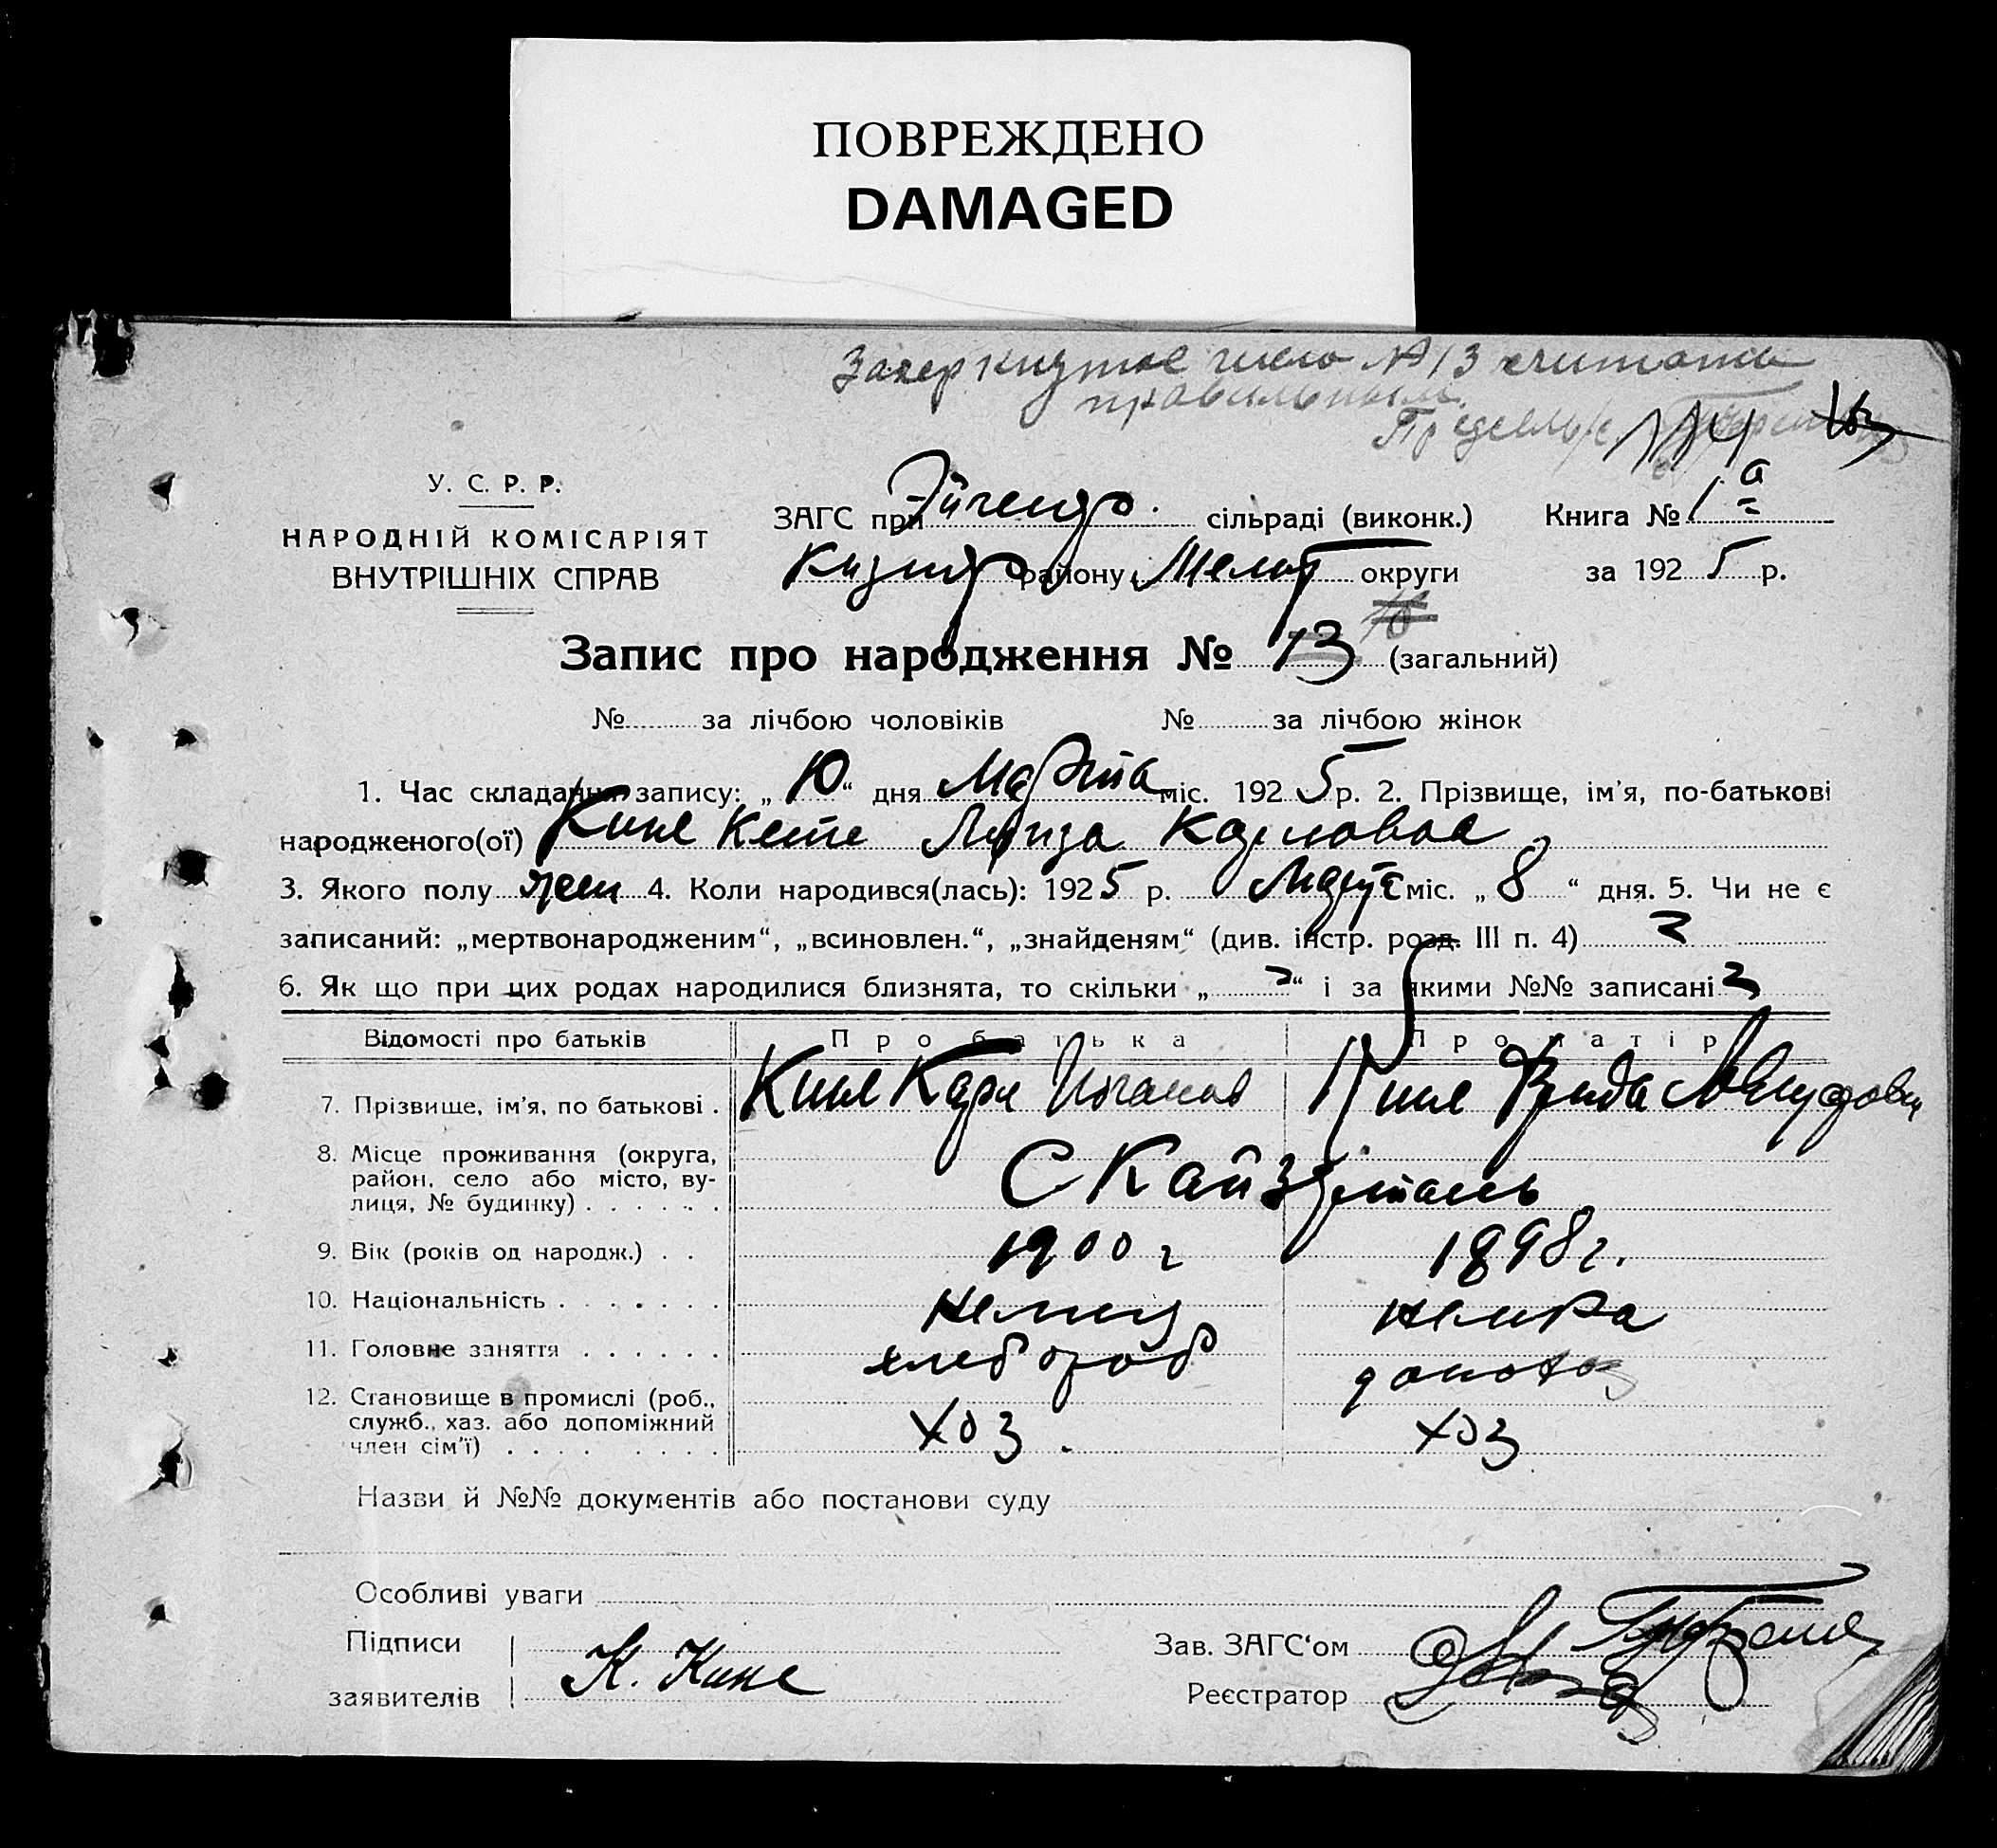 ПОВРЕЖДЕНО
DAMAGED
Зачеркнутое число № 13 считать
правильным.
У. С. Р. Р.
НАРОДНІЙ КОМІСАРІЯТ
ВНУТРІШНІХ СПРАВ
ЗАГС при Эйгенфр. сільраді (виконк.) Книга № 1а
району Мелит округи за 1925 р.
Запис про народження № 13 (загальний)
№ за лічбою чоловіків № за лічбою жінок
1. Час складання запису: „ 10 “ дня Марта міс. 1925 р. 2. Прізвище, ім'я, по-батькові
народженого(ої) Кине Кете Луиза Карловна
3. Якого полу жен 4. Коли народився(лась): 1925 р. Марта міс. „ 8 “ дня. 5. Чи не є
записаний: „мертвонародженим“, „всиновлен.“, „знайденям“ (див. інстр. розд. III п. 4)
6. Як що при цих родах народилися близнята, то скільки „ “ і за якими №№ записані
Відомості про батьків Про батька Про матір
7. Прізвище, ім'я, по батькові . Кине Карл Иоганов Кине Фрида
8. Місце проживання (округа,
район, село або місто, ву-
лиця, № будинку) . . . . . . С Кайзерталь
9. Вік (років од народж.) . . 1900 г 1898 г.
10. Національність . . . . . . . немец немка
11. Головне заняття . . . . . . хлебороб домохоз
12. Становище в промислі (роб.,
служб., хаз. або допоміжний
член сім'ї) . . . . . . . . . хоз. хоз
Назви й №№ документів або постанови суду
Особливі уваги
Підписи
заявителів К. Кине
Зав. ЗАГС‘ом
Реєстратор